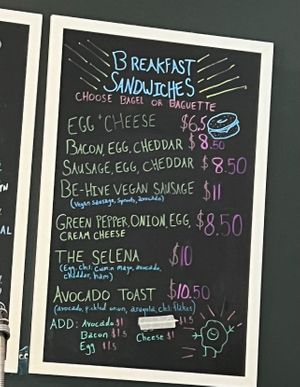 BREAKFAST
SANDWICHES
CHOOSE BAGEL OR BAGUETTE
EGG + CHEESE $6.5
BACON, EGG, CHEDDAR $8.50
SAUSAGE, EGG, CHEDDAR $8.50
BE-HIVE VEGAN SAUSAGE $11
(Vegan sausage, Sprouts, avocado)
GREEN PEPPER, ONION, EGG, $8.50
CREAM CHEESE
THE SELENA $10
(Egg, chili cumin mayo, avocado,
cheddar, ham)
AVOCADO TOAST $10.50
(avocado, pickled onion, arugula, chili flakes)
ADD: Avocado $1 $1.5
Bacon $1.5 Cheese $1
Egg $1.5